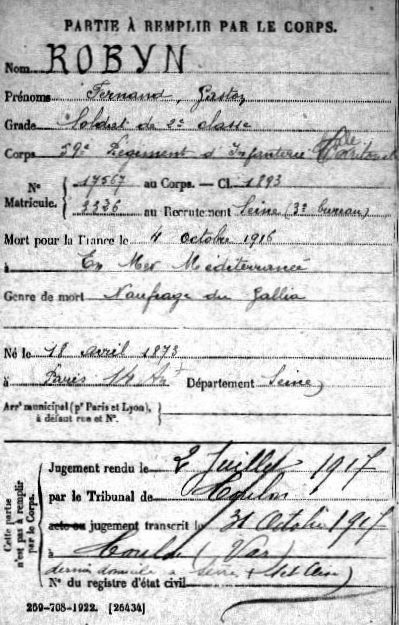 PARTIE À REMPLIR PAR LE CORPS.
Nom ROBYN
Prénoms Fernand, Gaston
Grade Soldat de 2e classe
Corps 59e Régiment d'Infanterie Tale
N° Matricule. { 17567 au Corps. — Cl. 1893
2236 au Recrutement Seine (3e bureau)
Mort pour la France le 4 octobre 1916
à En Mer Méditerranée
Genre de mort Naufrage du Gallia
Né le 18 avril 1873
à Paris 14 Art Département Seine
Arrt municipal (pr Paris et Lyon), à défaut rue et N°.
Cette partie n'est pas à remplir par le Corps.
Jugement rendu le 2 Juillet 1917
par le Tribunal de Toulon
acte ou jugement transcrit le 31 Octobre 1917
à Toulon (Var)
dernier domicile à
N° du registre d'état civil
269-708-1922. [26434]